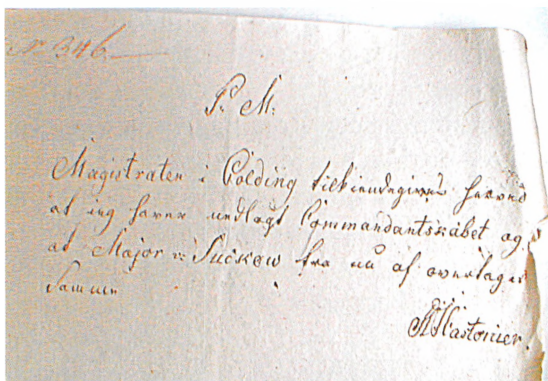 N 346
P. M.
Magistraten i Colding tilkiendegives herved
at ieg haver nedlagt Commandantskabet og
at Major v: Suckow fra nu af overtager
Samme